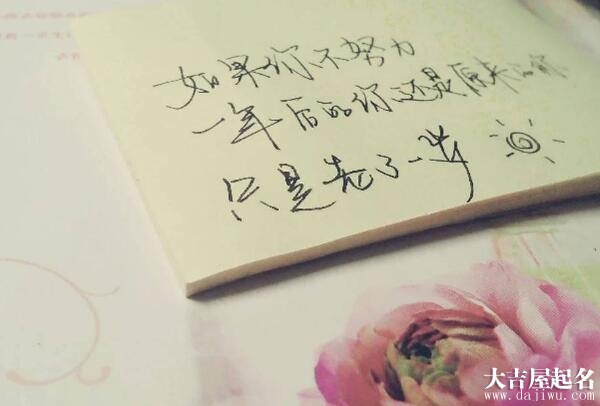 如果你不努力
一年后的你还是原来的你
只是老了一岁
大吉屋起名
www.dajiwu.com